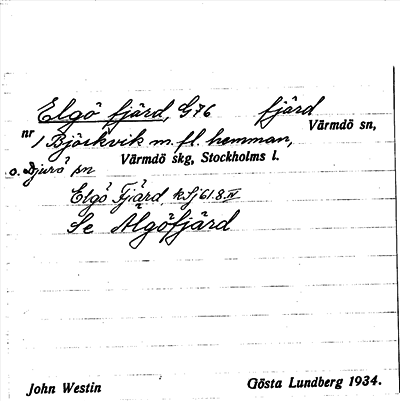 Elgö fjärd, G76 fjärd
Värmdö sn,
nr 1 Björkvik m. fl. hemman,
Värmdö skg, Stockholms l.
o. Djurö sn
Elgö Fjärd kSj 61.8.IV
Se Älgöfjärd
John Westin Gösta Lundberg 1934.